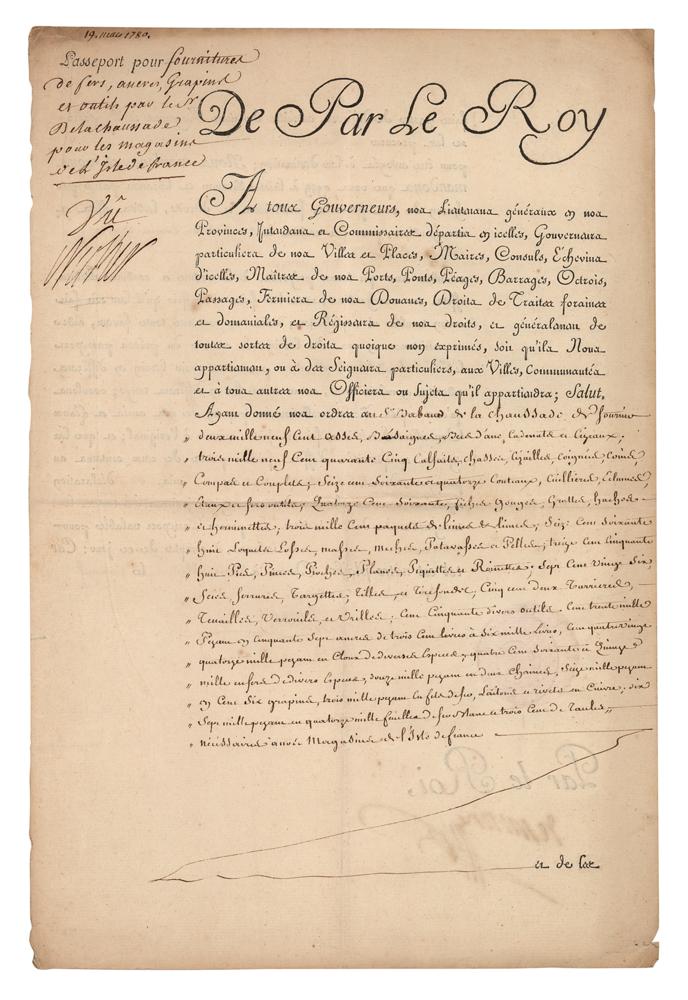 19. mars 1780.
Passeport pour fournitures
de fers, ancres, Grapins
et outils par le Sr
De la chaussade
pour les magasins
de L'Isle de france
Vû
De Par Le Roy
A tous Gouverneurs, nos Lieutenans généraux en nos
Provinces, Intendans et Commissaires départis en icelles, Gouverneurs
particuliers de nos Villes et Places, Maires, Consuls, Échevins
d'icelles, Maîtres de nos Ports, Ponts, Péages, Barrages, Octrois,
Passages, Fermiers de nos Douanes, Droits de Traites foraines
et domaniales, et Régisseurs de nos droits, et généralement de
toutes sortes de droits quoique non exprimés, soit qu'ils Nous
appartiennent, ou à des Seigneurs particuliers, aux Villes, Communautés
et à tous autres nos Officiers ou Sujets qu'il appartiendra; Salut,
Ayant donné nos ordres au Sr Babaud de la chaussade de fournir
" deux mille neuf Cent asses, Bésaigues, Becs d'anc, Cadenats et Cizeaux;
" trois mille neuf Cent quarante Cinq Calfaits, chasses, Eguilles, Coignées, Coins,
Compas et Couplets; Seize cent Soixante et quatorze Couteaux, Cuillieres,
Etaux et fers outils; Quatorze Cent Soixante, fiches, Gouges, Grattes, haches
" et herminettes; trois mille Cent paquets de limes de limes; Seize Cent Soixante
" huit Loquets, masses, meches, et Pelles; treize cent Cinquante
" huit Pics, Pinces, Pioches, Planes, Piquettes et Roinettes; Sept Cent Vingt Six
" Scies, Serrures, Targettes; Tilles, et Tirefonds; Cinq Cent deux Tarrieres,
" Tenailles, Verrouils, et Vrilles; Cent Cinquante divers outils. Cent trente mille
" Pezant en Cinquante Sept ancres de trois Cent livres à Six mille livres, Cent quatre vingt
" quatorze mille pezant en Cloux de diverses Especes; quatre Cent Soixante et Quinze
" mille en fers de divers Especes; douze mille pezant en deux Chaines, Seize mille pezant
" en Cent Six grapins, trois mille pezant en fils de fer, Laitons et rivets en Cuivre; dix
" Sept mille pezant en quatorze mille feuilles de fer et trois Cent de
" nécessaires à nos Magasins de l'Isle de france
et de les